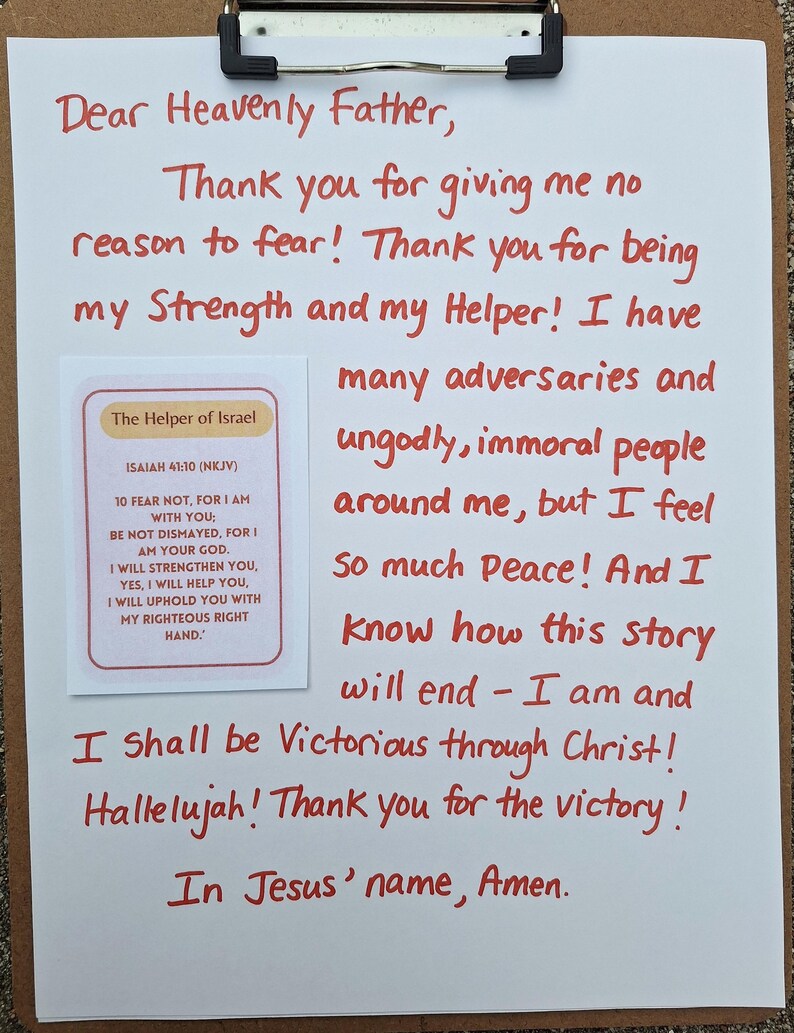 Dear Heavenly Father,
Thank you for giving me no
reason to fear! Thank you for being
my Strength and my Helper! I have
many adversaries and
ungodly, immoral people
around me, but I feel
so much peace! And I
know how this story
will end - I am and
I shall be victorious through Christ!
Hallelujah! Thank you for the victory!
In Jesus' name, Amen.
The Helper of Israel
ISAIAH 41:10 (NKJV)
10 FEAR NOT, FOR I AM
WITH YOU;
BE NOT DISMAYED, FOR I
AM YOUR GOD.
I WILL STRENGTHEN YOU,
YES, I WILL HELP YOU,
I WILL UPHOLD YOU WITH
MY RIGHTEOUS RIGHT
HAND.'